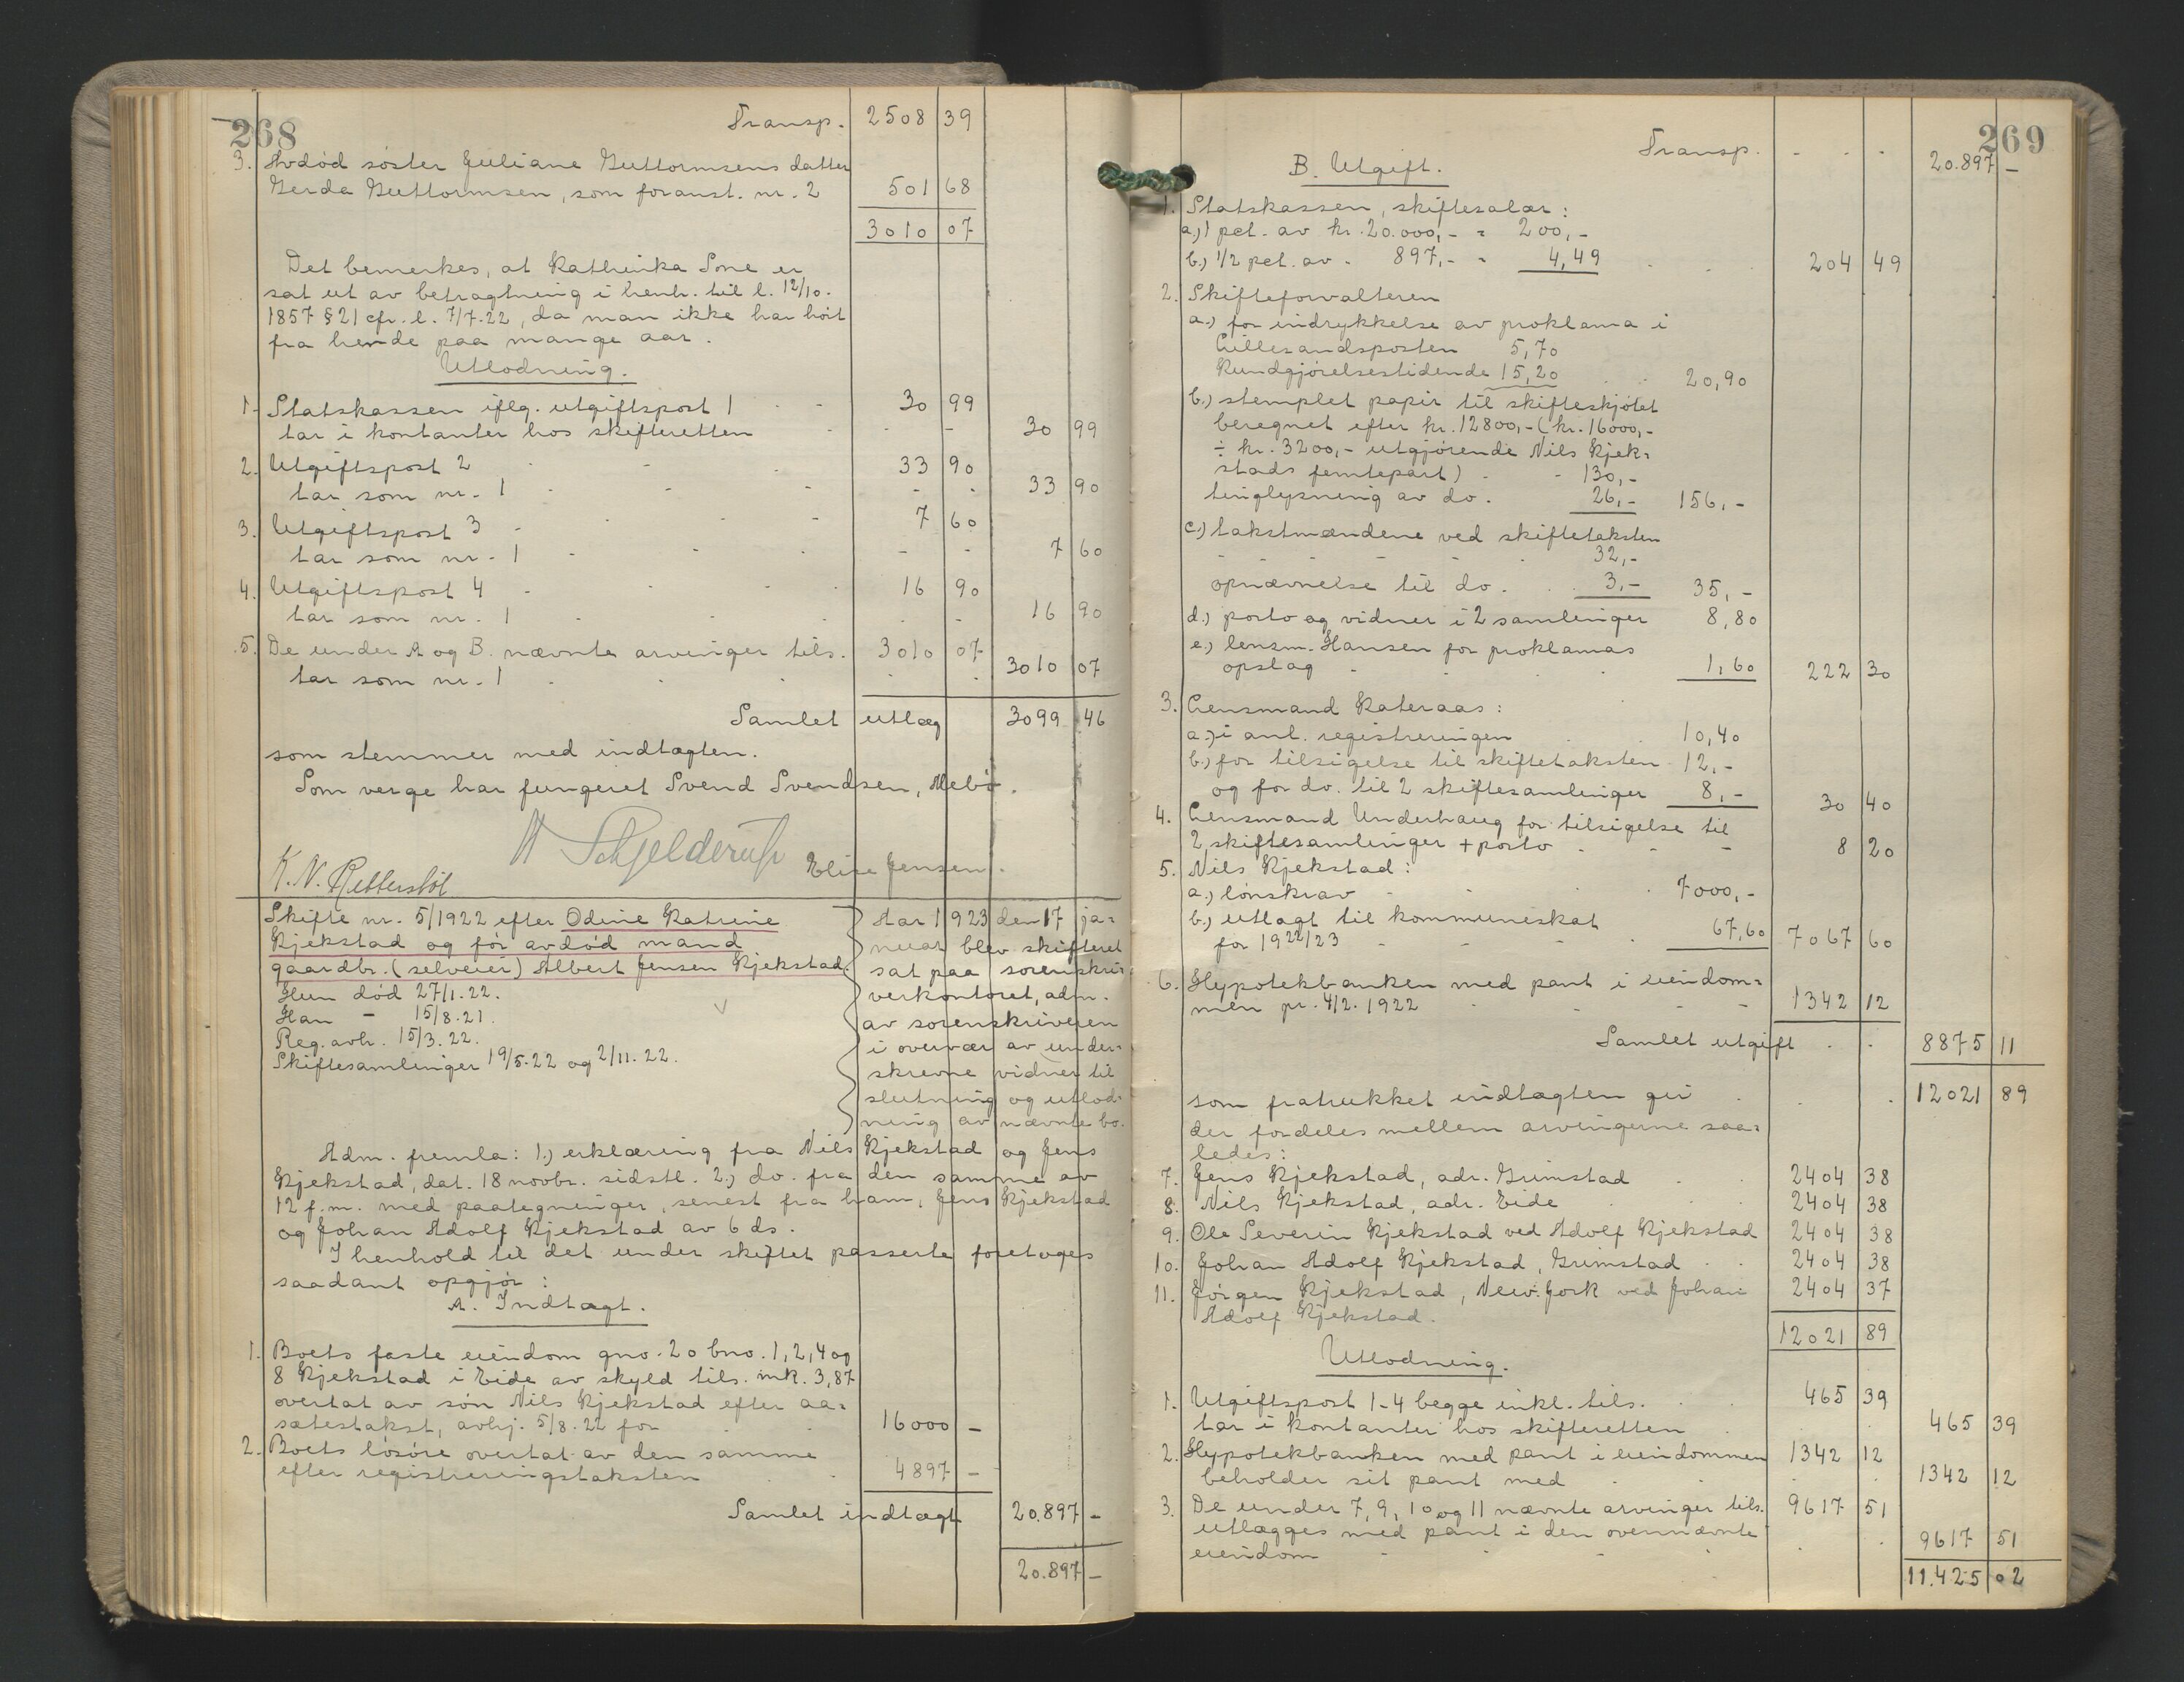 268
Transp. 2508 39
3. Avdöd söster Juliane Guttormsens datter
Gerda Guttormsen, som foranst. nr. 2 501 68
3010 07
Det bemerkes, at Kathinka Sone er
sat ut av betragtning i henh. til l. 12/10.
1857 § 21 cfr. l. 7/7.22, da man ikke har hört
fra hende paa mange aar.
Utlodning.
1. Statskassen iflg. utgiftspost 1 - - 30 99
tar i kontanter hos skifteretten - - - 30 99
2. Utgiftspost 2 - - - 33 90
tar som nr. 1 - - - - - 33 90
3. Utgiftspost 3 - - - - 7 60
tar som nr. 1 - - - - - 7 60
4. Utgiftspost 4 - - - 16 90
tar som nr. 1 - - - - - 16 90
5. De under A og B. nævnte arvinger tils. 3010 07
tar som nr. 1 - - - - - 3010 07
Samlet utlæg 3099 46
som stemmer med indtægten.
Som verge har fungeret Svend Svendsen, Mebö.
A Schjelderup
K. N. Retterstöl Elise Jensen.
Skifte nr. 5/1922 efter Odine Katrine
Kjekstad og för avdöd mand
gaardbr. (selveier) Albert Jensen Kjekstad.
Hun död 27/1.22.
Han - 15/8.21.
Reg. avh. 15/3.22.
Skiftesamlinger 19/5.22 og 2/11.22.
Aar 1923 den 17 ja-
nuar blev skifteret
sat paa sorenskri-
verkontoret, adm.
av sorenskriveren
i overvær av under-
skrevne vidner til
slutning og utlod-
ning av nævnte bo.
Adm. fremla: 1.) erklæring fra Nils Kjekstad og Jens
Kjekstad, dat. 18 novbr. sidstl. 2.) do. fra den samme av
12 f.m. med paategninger, senest fra ham, Jens Kjekstad
og Johan Adolf Kjekstad av 6 ds.
I henhold til det under skiftet passerte foretoges
saadant opgjör:
A. Indtægt.
1. Boets faste eiendom gno. 20 bno. 1, 2, 4 og
8 Kjekstad i Eide av skyld tils. mk. 3,87
overtat av sön Nils Kjekstad efter aa-
sætestakst, avhj. 5/8.22 for - - 16000 -
2. Boets lösöre overtat av den samme
efter registreringstaksten - - 4897 -
Samlet indtægt 20.897 -
20.897 -
269
Transp. - - - 20.897 -
B. Utgift.
1. Statskassen, skiftesalær:
a.) 1 pct. av kr. 20.000,- = 200,-
b.) 1/2 pct. av - 897,- - 4,49 - - 204 49
2. Skifteforvalteren
a.) for indrykkelse av proklama i
Lillesandsposten 5,70
Kundgjörelsestidende 15,20 - - 20,90
b.) stemplet papir til skifteskjötet
beregnet efter kr. 12800,- (kr. 16000,-
÷ kr. 3200,- utgjörende Nils Kjek-
stads femtepart) - - 130,-
tinglysning av do. 26,- 156,-
c.) takstmændene ved skiftetaksten
- - - - - 32,-
opnævnelse til do. - - 3,- 35,-
d.) porto og vidner i 2 samlinger 8,80
e.) lensm. Hansen for proklamas
opslag - - - - 1,60 222 30
3. Lensmand Kateraas:
a.) i anl. registreringen - - 10,40
b.) for tilsigelse til skiftetaksten 12,-
og for do. til 2 skiftesamlinger 8,- 30 40
4. Lensmand Underhaug for tilsigelse til
2 skiftesamlinger + porto - - - 8 20
5. Nils Kjekstad:
a.) lönskrav - - - 7000,-
b.) utlagt til kommuneskat
for 1922/23 - - - - 67,60 7067 60
6. Hypotekbanken med pant i eiendom-
men pr. 4/2. 1922 - - - 1342 12
Samlet utgift - - 8875 11
som fratrukket indtægten gir - - - 12021 89
der fordeles mellem arvingerne saa-
ledes:
7. Jens Kjekstad, adr. Grimstad - - 2404 38
8. Nils Kjekstad, adr. Eide - - 2404 38
9. Ole Severin Kjekstad ved Adolf Kjekstad 2404 38
10. Johan Adolf Kjekstad, Grimstad - - 2404 38
11. Jörgen Kjekstad, New. Jork ved Johan 2404 37
Adolf Kjekstad.
12021 89
Utlodning.
1. Utgiftspost 1-4 begge inkl. tils. - 465 39
tar i kontanter hos skifteretten - - - 465 39
2. Hypotekbanken med pant i eiendommen 1342 12
beholder sit pant med - - - 1342 12
3. De under 7, 9, 10 og 11 nævnte arvinger tils. 9617 51
utlægges med pant i den ovennævnte
eiendom - - - - - 9617 51
11.425 02